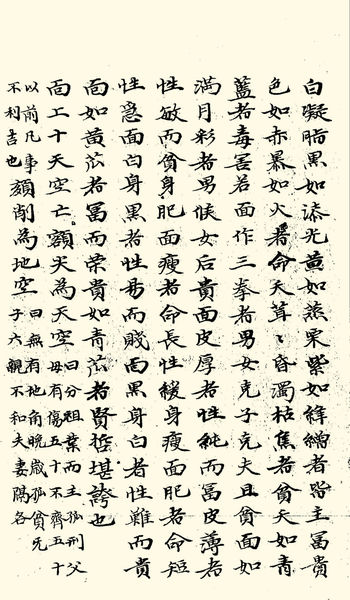 白凝脂黒如漆光黄如蒸栗紫如絳繒者皆主冨貴
色如赤暴如火者命夭茸〻昏濁枯焦者貧夭如青
藍者毒害若面作三拳者男女克子克夫且貧面如
滿月彩者男候女后貴面皮厚者性純而冨皮薄者
性敏而貧身肥面瘦者命長性緩身瘦面肥者命短
性急面白身黒者性易而賤面黒身白者性難而貴
面如黄苽者冨而榮貴如青苽者賢哲堪誇也
面工十天空亡額尖為天空曰分祖業而主孤刑父
母有傷五十不齊五十
以前凡事
不利吉也
顔削為地空曰無有地角晚歲孤貧兄
子六親不和夫妻隔各